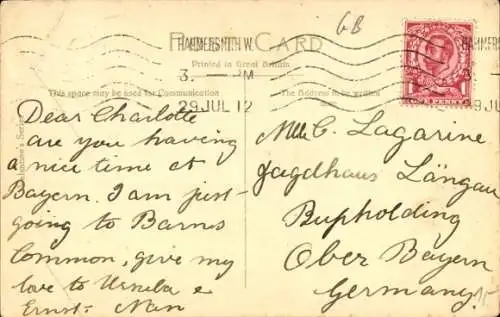 GB
POST CARD
HAMMERSMITH W.
3. — PM
29 JUL 12
Printed in Great Britain
This space may be used for Communication
The Address to be written
ONE PENNY
Dear Charlotte
are you having
a nice time at
Bayern. I am just
going to Barnes
Common, give my
love to Ursula e
Ernst. Nan
Mlle C. Lagarine
Jagdhaus Längau
Bupholding
Ober Bayern
Germany.